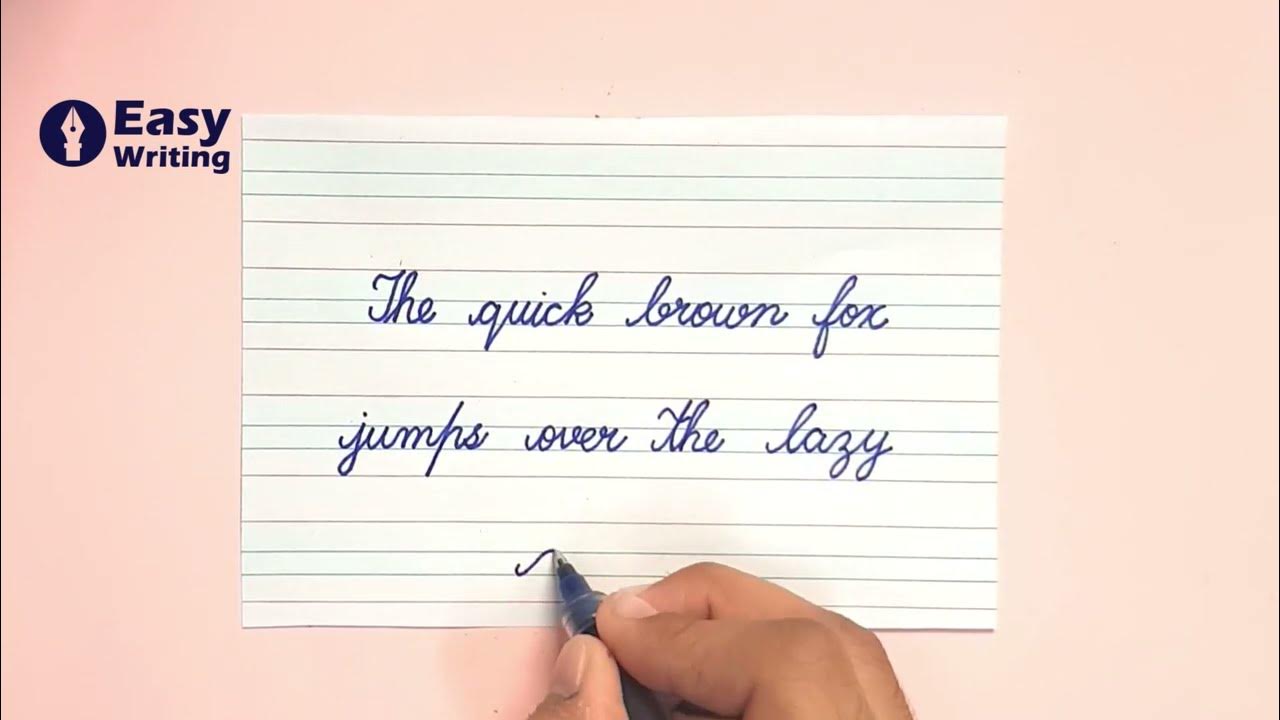 Easy
Writing
The quick brown fox
jumps over the lazy